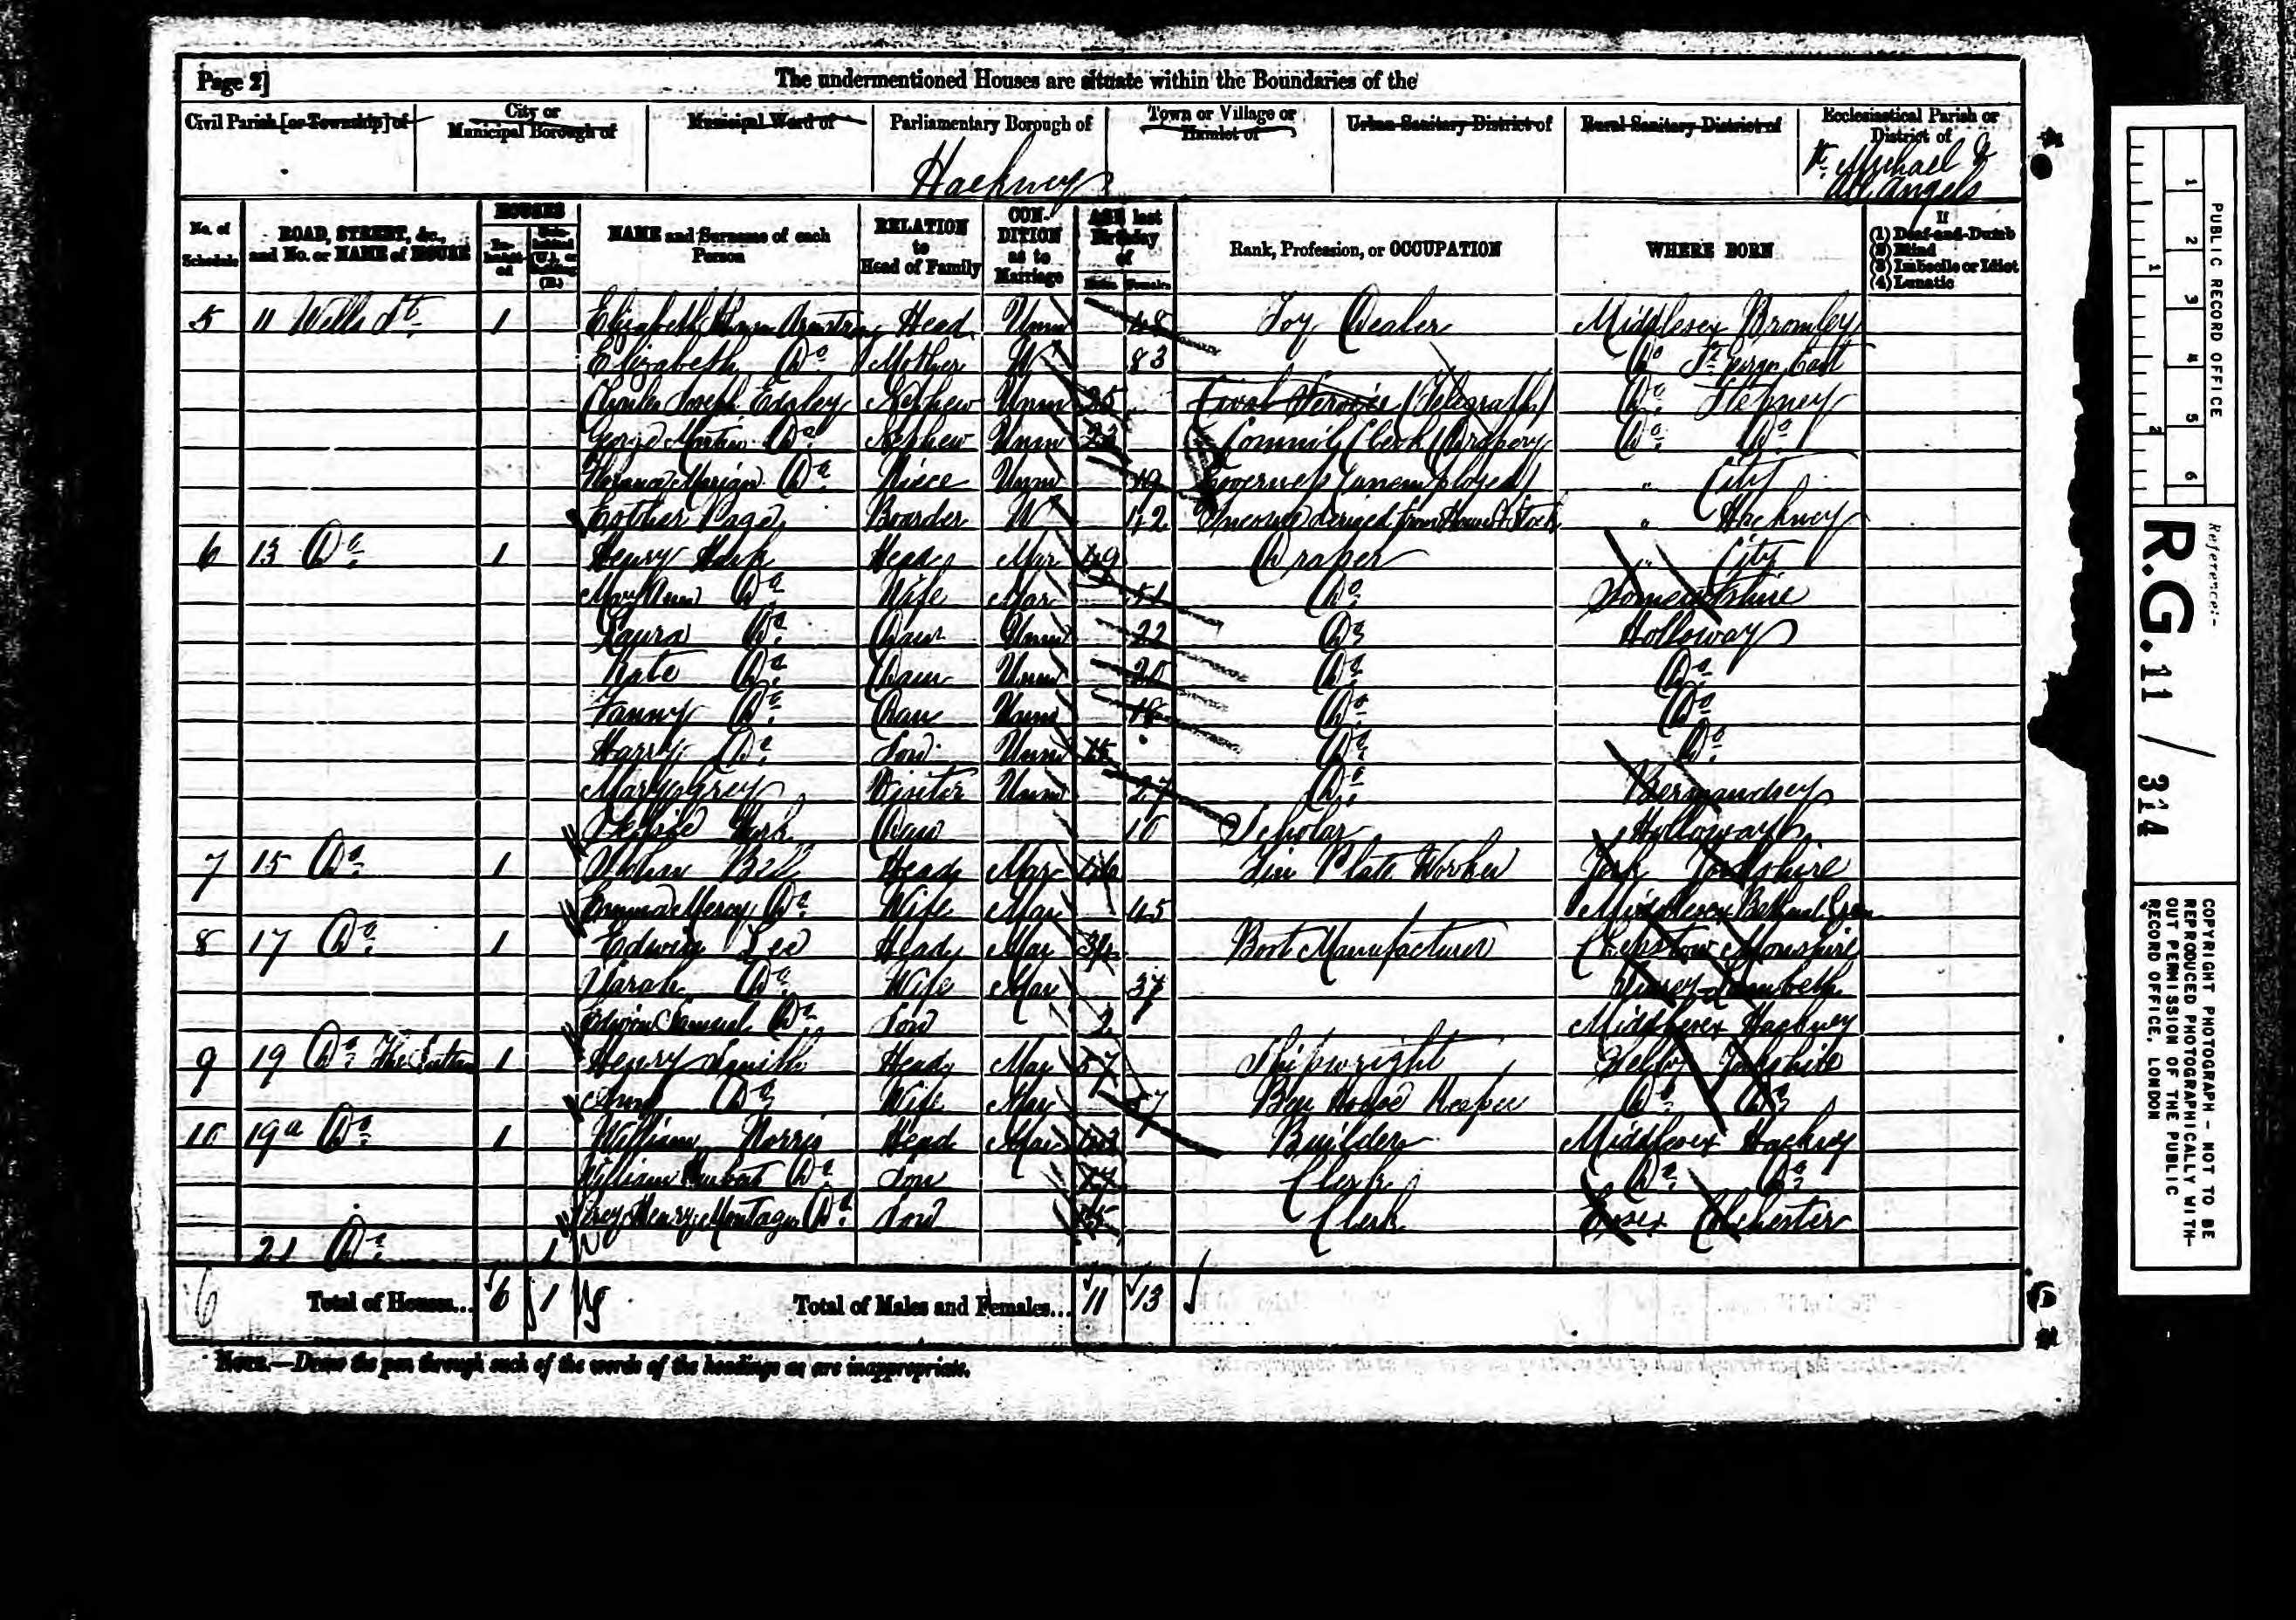 Page 2]
The undermentioned Houses are situate within the Boundaries of the
Civil Parish [or Township] of
City or Municipal Borough of
Municipal Ward of
Parliamentary Borough of
Hackney
Town or Village or Hamlet of
Urban Sanitary District of
Rural Sanitary District of
Ecclesiastical Parish or District of
St. Michael & All Angels
No. of Schedule
ROAD, STREET, &c., and No. or NAME of HOUSE
HOUSES
NAME and Surname of each Person
RELATION to Head of Family
CONDITION as to Marriage
AGE last Birthday of
Males Females
Rank, Profession, or OCCUPATION
WHERE BORN
If
(1) Deaf-and-Dumb
(2) Blind
(3) Imbecile or Idiot
(4) Lunatic
5 11 Wells St. 1 Elizabeth Head Unm 48 Toy Dealer Middlesex Bromley
Elizabeth Do. Mother W 83 Do St. George East
Charles Joseph Nephew Unm 25 Civil Service (Telegraph) Do. Stepney
George Martin Do. Nephew Unm 23 Clerk (Drapery) Do. Do.
Do. Niece Unm 19 Governess (unemployed) " City
Esther Page Boarder W 42 Income derived from " Hackney
6 13 Do. 1 Henry Head Mar 49 Draper " City
Mary Ann Do. Wife Mar 51 Do. Somersetshire
Laura Do. Daur Unm 22 Do. Holloway
Kate Do. Daur Unm 20 Do. Do.
Fanny Do. Dau Unm 18 Do. Do.
Harry Do. Son Unm 15 Do. Do.
Mary Grey Visitor Unm 27 Do. Bermondsey
Dau 10 Scholar Holloway
7 15 Do. 1 Bell Head Mar 46 Tin Plate Worker York Yorkshire
Emma Mercy Do. Wife Mar 45 Middlesex Bethnal Green
8 17 Do. 1 Edwin Lee Head Mar 34 Boot Manufacturer Chepstow Monshire
Sarah Do. Wife Mar 37 Surrey Lambeth
Edwin Samuel Do. Son 2 Middlesex Hackney
9 19 Do. 1 Henry Smith Head Mar 57 Shipwright Selby Yorkshire
Do. Wife Mar 57 Beer House Keeper Do. Do.
10 19a Do. 1 William Norris Head Mar Builder Middlesex Hackney
William Do. Son 17 Clerk Do. Do.
Henry Montague Do. Son 15 Clerk Essex Colchester
21 Do. 1
6 Total of Houses... 6 1 Total of Males and Females... 11 13
NOTE.—Draw the pen through such of the words of the headings as are inappropriate.
PUBLIC RECORD OFFICE
1 2 3 4 5 6
1 2
Reference:-
R.G. 11 / 314
COPYRIGHT PHOTOGRAPH - NOT TO BE
REPRODUCED PHOTOGRAPHICALLY WITH-
OUT PERMISSION OF THE PUBLIC
RECORD OFFICE, LONDON